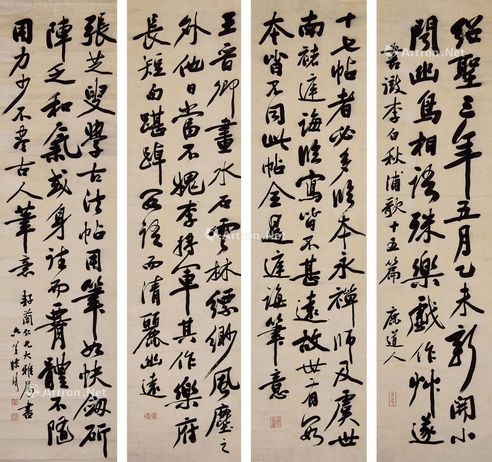 紹聖三年五月乙未新開小
聞幽鳥相語殊樂戲作艸遂
書徹李白秋浦歌十五篇 鹿道人
十七帖者必多臨本永禪師及虞世
南褚庭誨臨寫皆不甚遠故世有數
本皆不同此帖全是庭誨筆意
王晉卿畫水石雲林縹緲風塵之
外他日當不愧李將軍其作樂府
長短句踸踔口語而清麗幽遠
張芝叟學古法帖用筆如快劒斫
陣乏和氣或身許而臂體不隨
用力少不盡古人筆意
蘭仁兄大雅屬書
Artron.Net